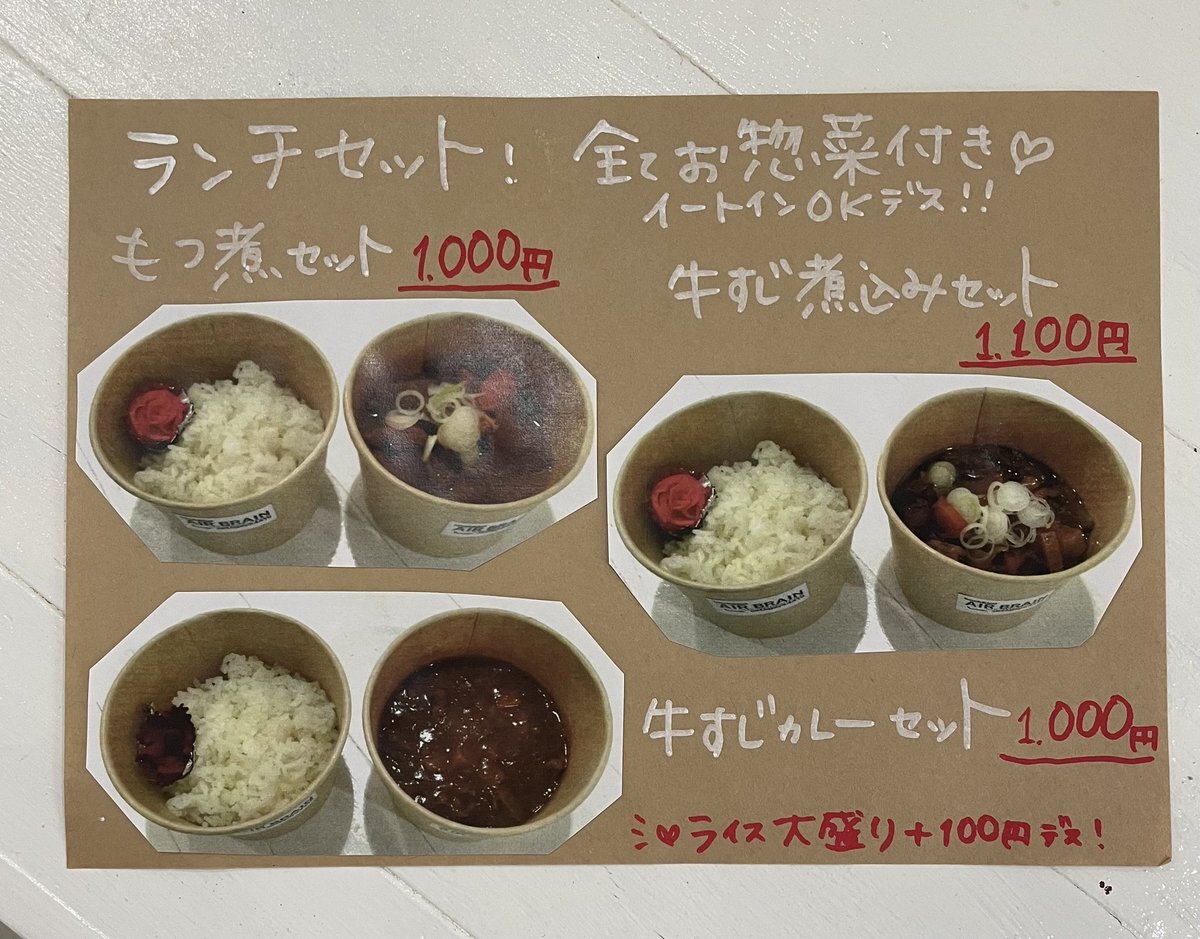 ランチセット！ 全てお惣菜付き♡
イートインOKデス!!
もつ煮セット 1.000円
牛すじ煮込みセット
1.100円
AIR BRAIN
AIR BRAIN
AIR BRAIN
AIR BRAIN
牛すじカレーセット 1.000円
ライス大盛り+100円デス！